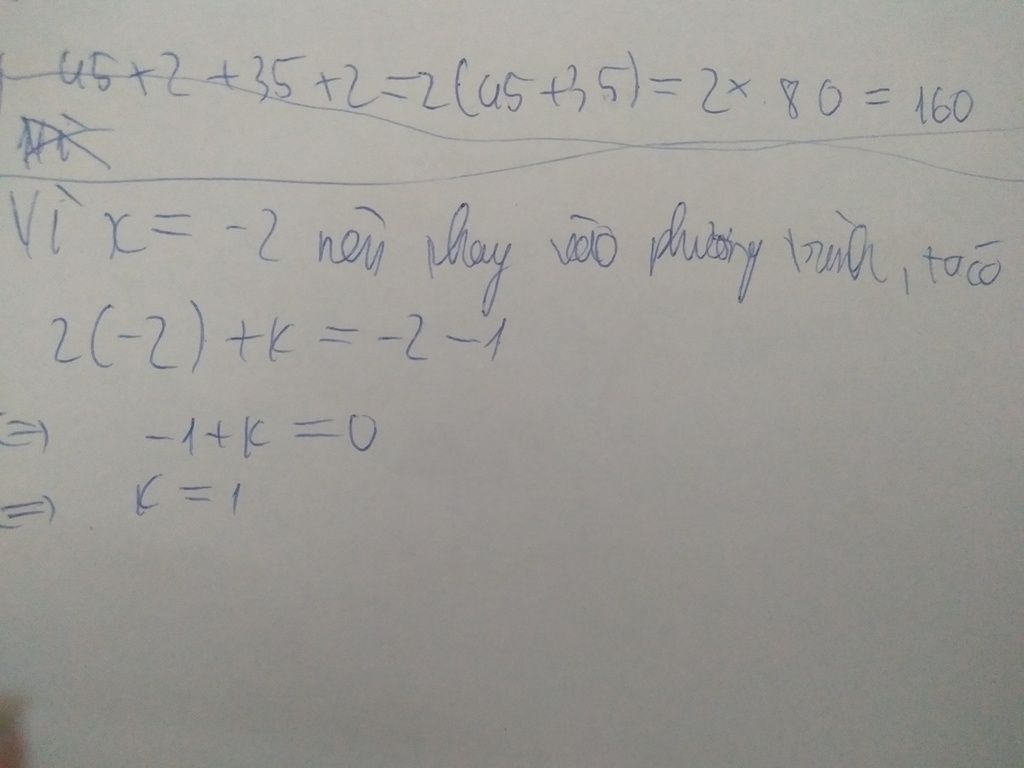 45 + 2 + 35 + 2 = 2(45 + 35) = 2 × 80 = 160
Vì x = -2 nên thay vào phương trình, ta có
2(-2) + k = -2 - 1
=> -1 + k = 0
=> k = 1